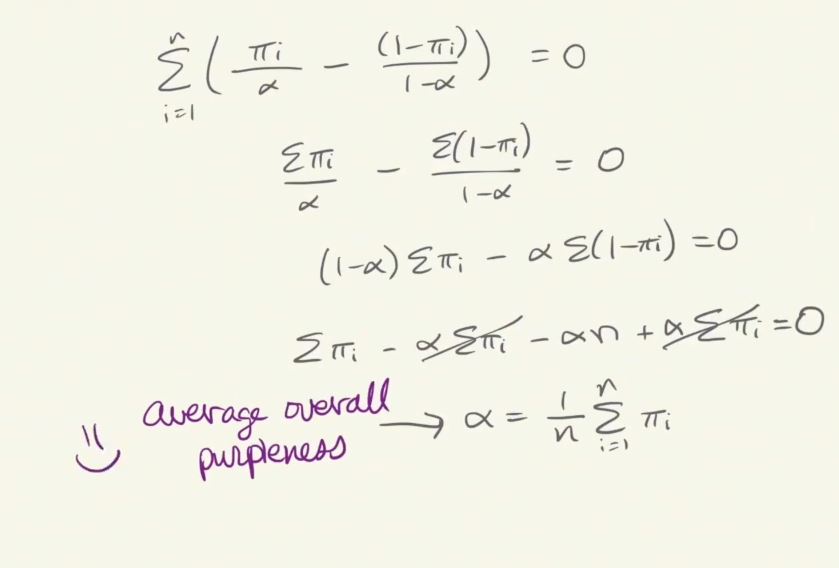 \sum_{i=1}^{n} ( \frac{π_i}{α} - \frac{(1-π_i)}{1-α} ) = 0
\frac{Σπ_i}{α} - \frac{Σ(1-π_i)}{1-α} = 0
(1-α) Σπ_i - α Σ(1-π_i) = 0
Σπ_i - αΣπ_i - αn + αΣπ_i = 0
average overall purpleness → α = \frac{1}{n} \sum_{i=1}^{n} π_i